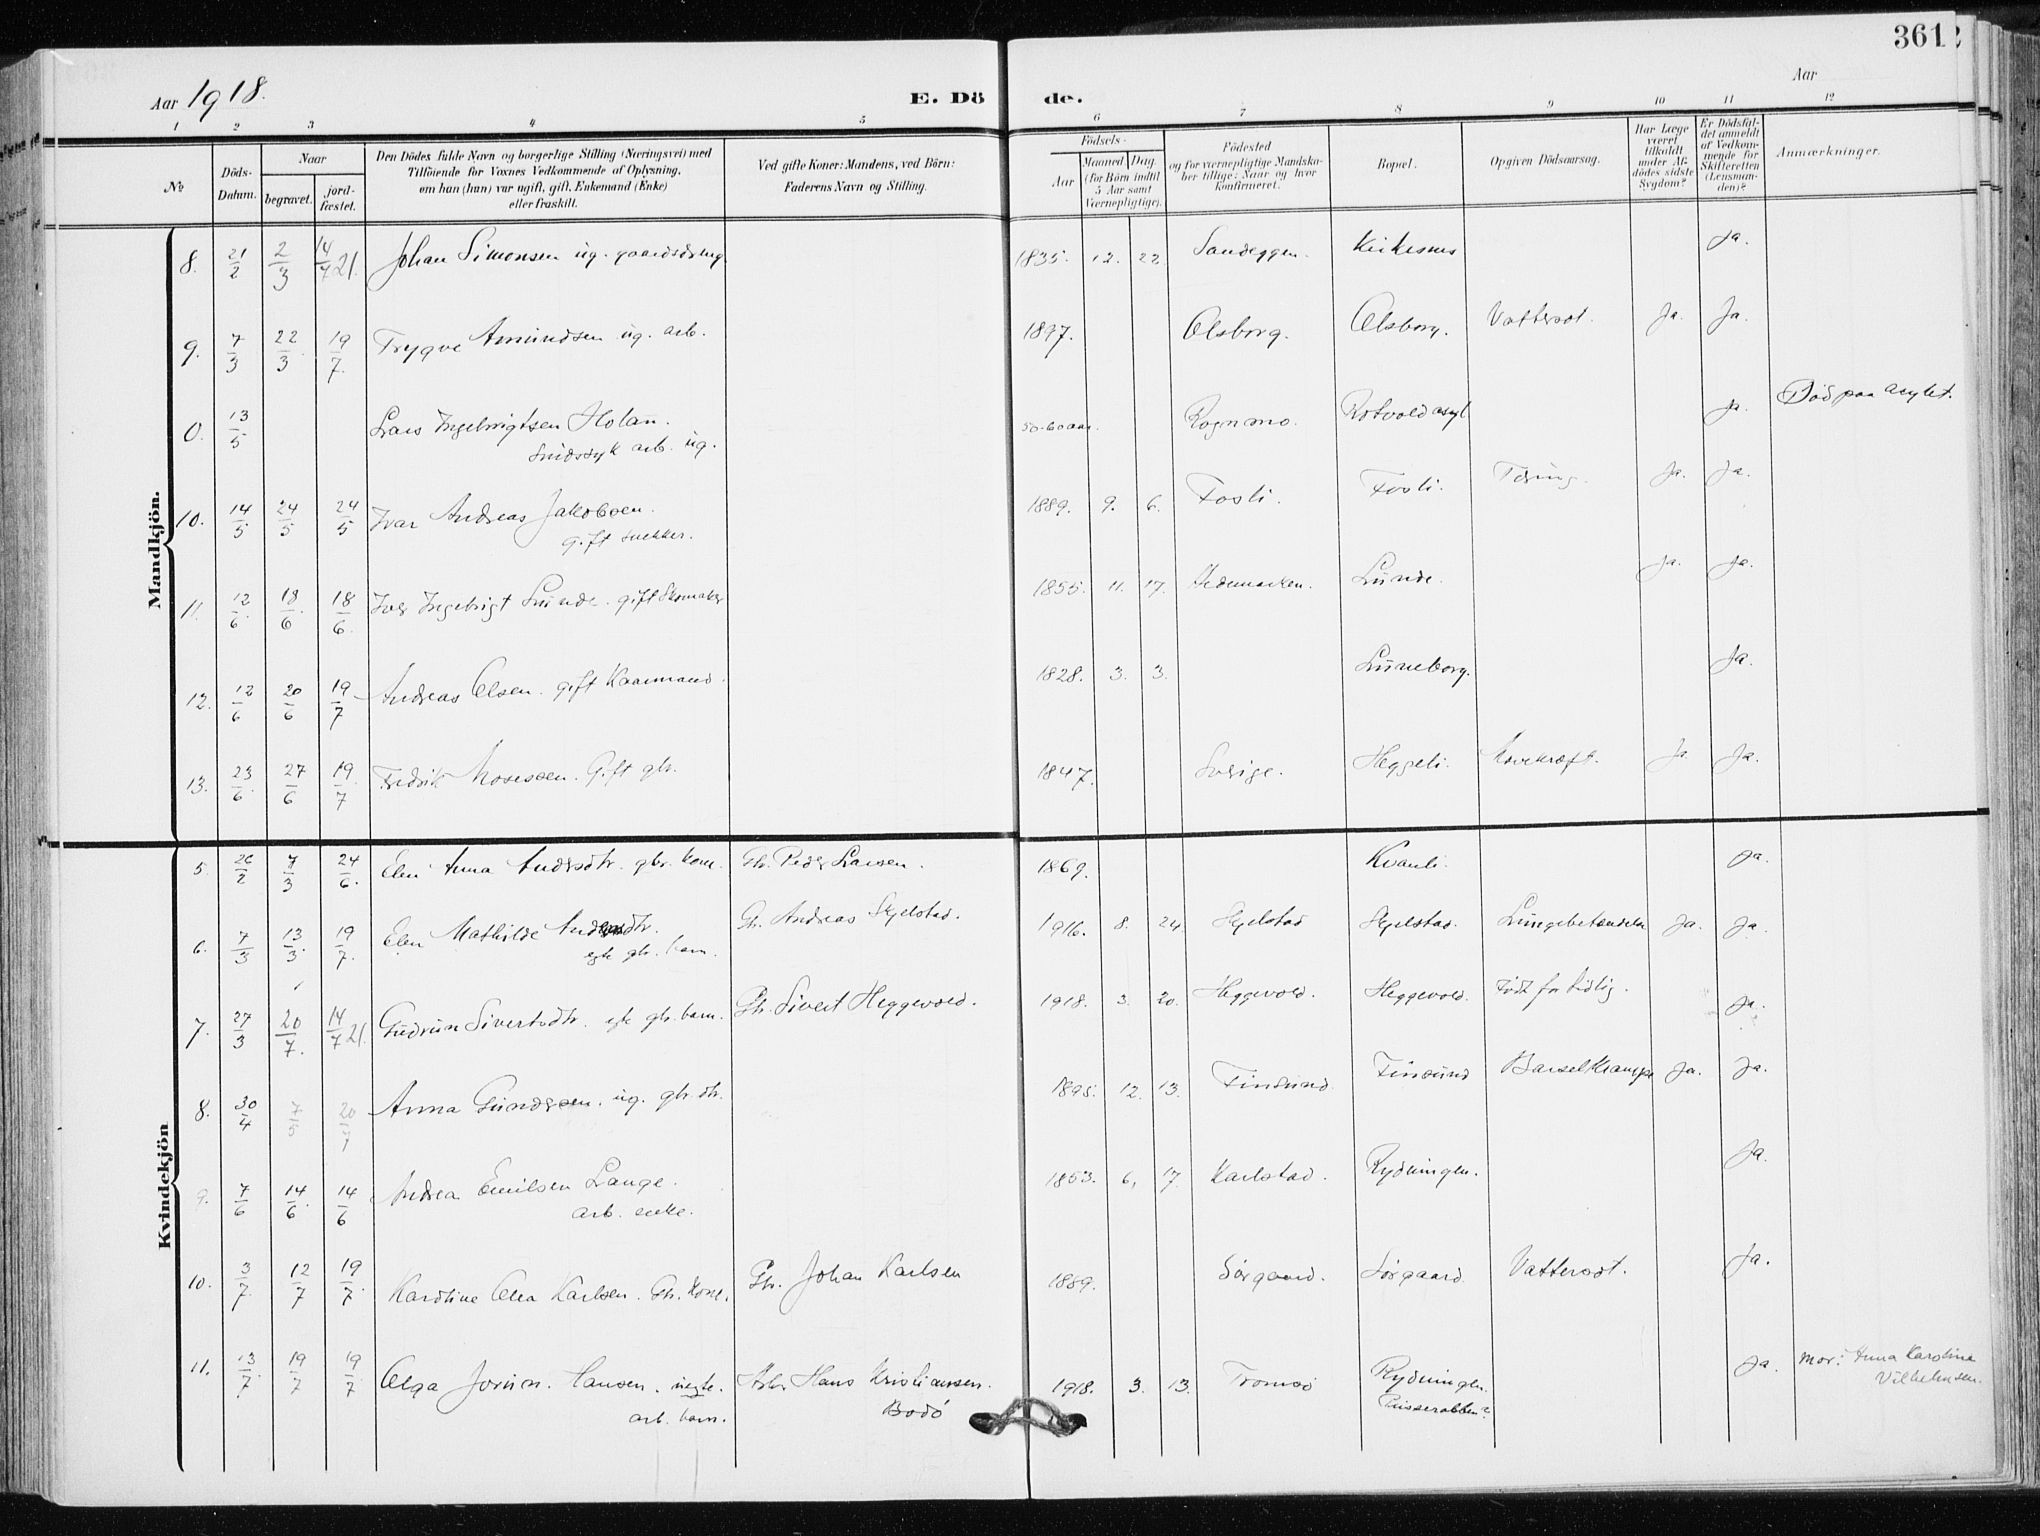 3612
Aar 1918.
E. Dö de.
Aar
1 2 3 4 5 6 7 8 9 10 11 12
No
Döds-Datum.
Naar
begravet.
jord-fæstet.
Den Dödes fulde Navn og borgerlige Stilling (Næringsvei) med
Tilföiende for Voxnes Vedkommende af Oplysning,
om han (hun) var ugift, gift, Enkemand (Enke)
eller fraskilt.
Ved gifte Koner: Mandens, ved Börn:
Faderens Navn og Stilling.
Födsels-
Aar
Maaned Dag
(for Börn indtil
5 Aar samt
Værnepligtige).
Födested
og for værnepligtige Mandska-
ber tillige: Naar og hvor
Konfirmeret.
Bopæl.
Opgiven Dödsaarsag.
Har Læge
været
tilkaldt
under Af-
dödes sidste
Sygdom?
Er Dödsfal-
det anmeldt
af Vedkom-
mende for
Skifteretten
(Lensman-
den)?
Anmærkninger.
Mandkjön.
8. 21/2 2/3 14/7 21. Johan Simonsen ug. gaardsdreng 1835. 12. 22. Sandeggen. Kirkesnes Ja.
9. 7/3 22/3 19/7. Trygve Amundsen ug. arb. 1897. Olsborg. Olsborg. Vattersot. Ja. Ja.
0. 13/5 Lars Ingebrigtsen Holan. 50-60 aar. Rognmo. Rotvold asyl Ja. Död paa asylet.
Sindssyk arb. ug.
10. 14/5 24/5 24/5 Ivar Andreas Jakobsen. 1889. 9. 6. Fosli. Fosli. Tæring. Ja. Ja.
gift snekker.
11. 12/6 18/6 18/6. Iver Ingebrigt Lunde. gift Skomaker 1855. 11. 17. Hedemarken. Lunde. Ja. Ja.
12. 12/6 20/6 19/7 Andreas Olsen. gift Kaarmand. 1828. 3. 3. Luneborg. Ja.
13. 23/6 27/6 19/7 Fredrik Mosesen. Gift gbr. 1847. Sverige. Heggeli. Mavekræft. Ja Ja.
Kvindekjön
5. 26/2 7/3 24/6. Elen Anna Andersdtr. gbr. kone. Gbr. Peder Larsen. 1869. Kvanli. Ja.
6. 7/3 13/3 19/7. Elen Mathilde Andersdtr. Gbr. Andreas Skjelstad. 1916. 8. 24. Skjelstad Skjelstad. Lungebetændelse Ja. Ja.
egte gbr. barn.
7. 27/3 20/7. 14/7 21. Gudrun Sivertsdtr. egte gbr. barn. Gbr. Sivert Heggevold. 1918. 3. 20. Heggevold. Heggevold. Född for tidlig. Ja.
8. 30/4 7/5 20/7 Anna Gundersen. ug. gbr. dtr. 1895. 12. 13. Finsund. Finsund Barselkrampe Ja. Ja.
9. 7/6 14/6. 14/6 Andrea Emilsen Lange. 1853. 6. 17. Karlstad. Rydningen. Ja.
arb. enke.
10. 3/7. 12/7 19/7. Karoline Olea Karlsen. Gbr. kone. Gbr. Johan Karlsen 1889. Sörgaard. Sörgaard Vattersot. Ja.
11. 13/7. 19/7 19/7. Olga Jorun. Hansen. uegte. Arb. Hans Kristiansen. 1918. 3. 13. Tromsö Rydningen. Ja. Mor: Anna Karoline
arb. barn. Bodö Vilhelmsen.